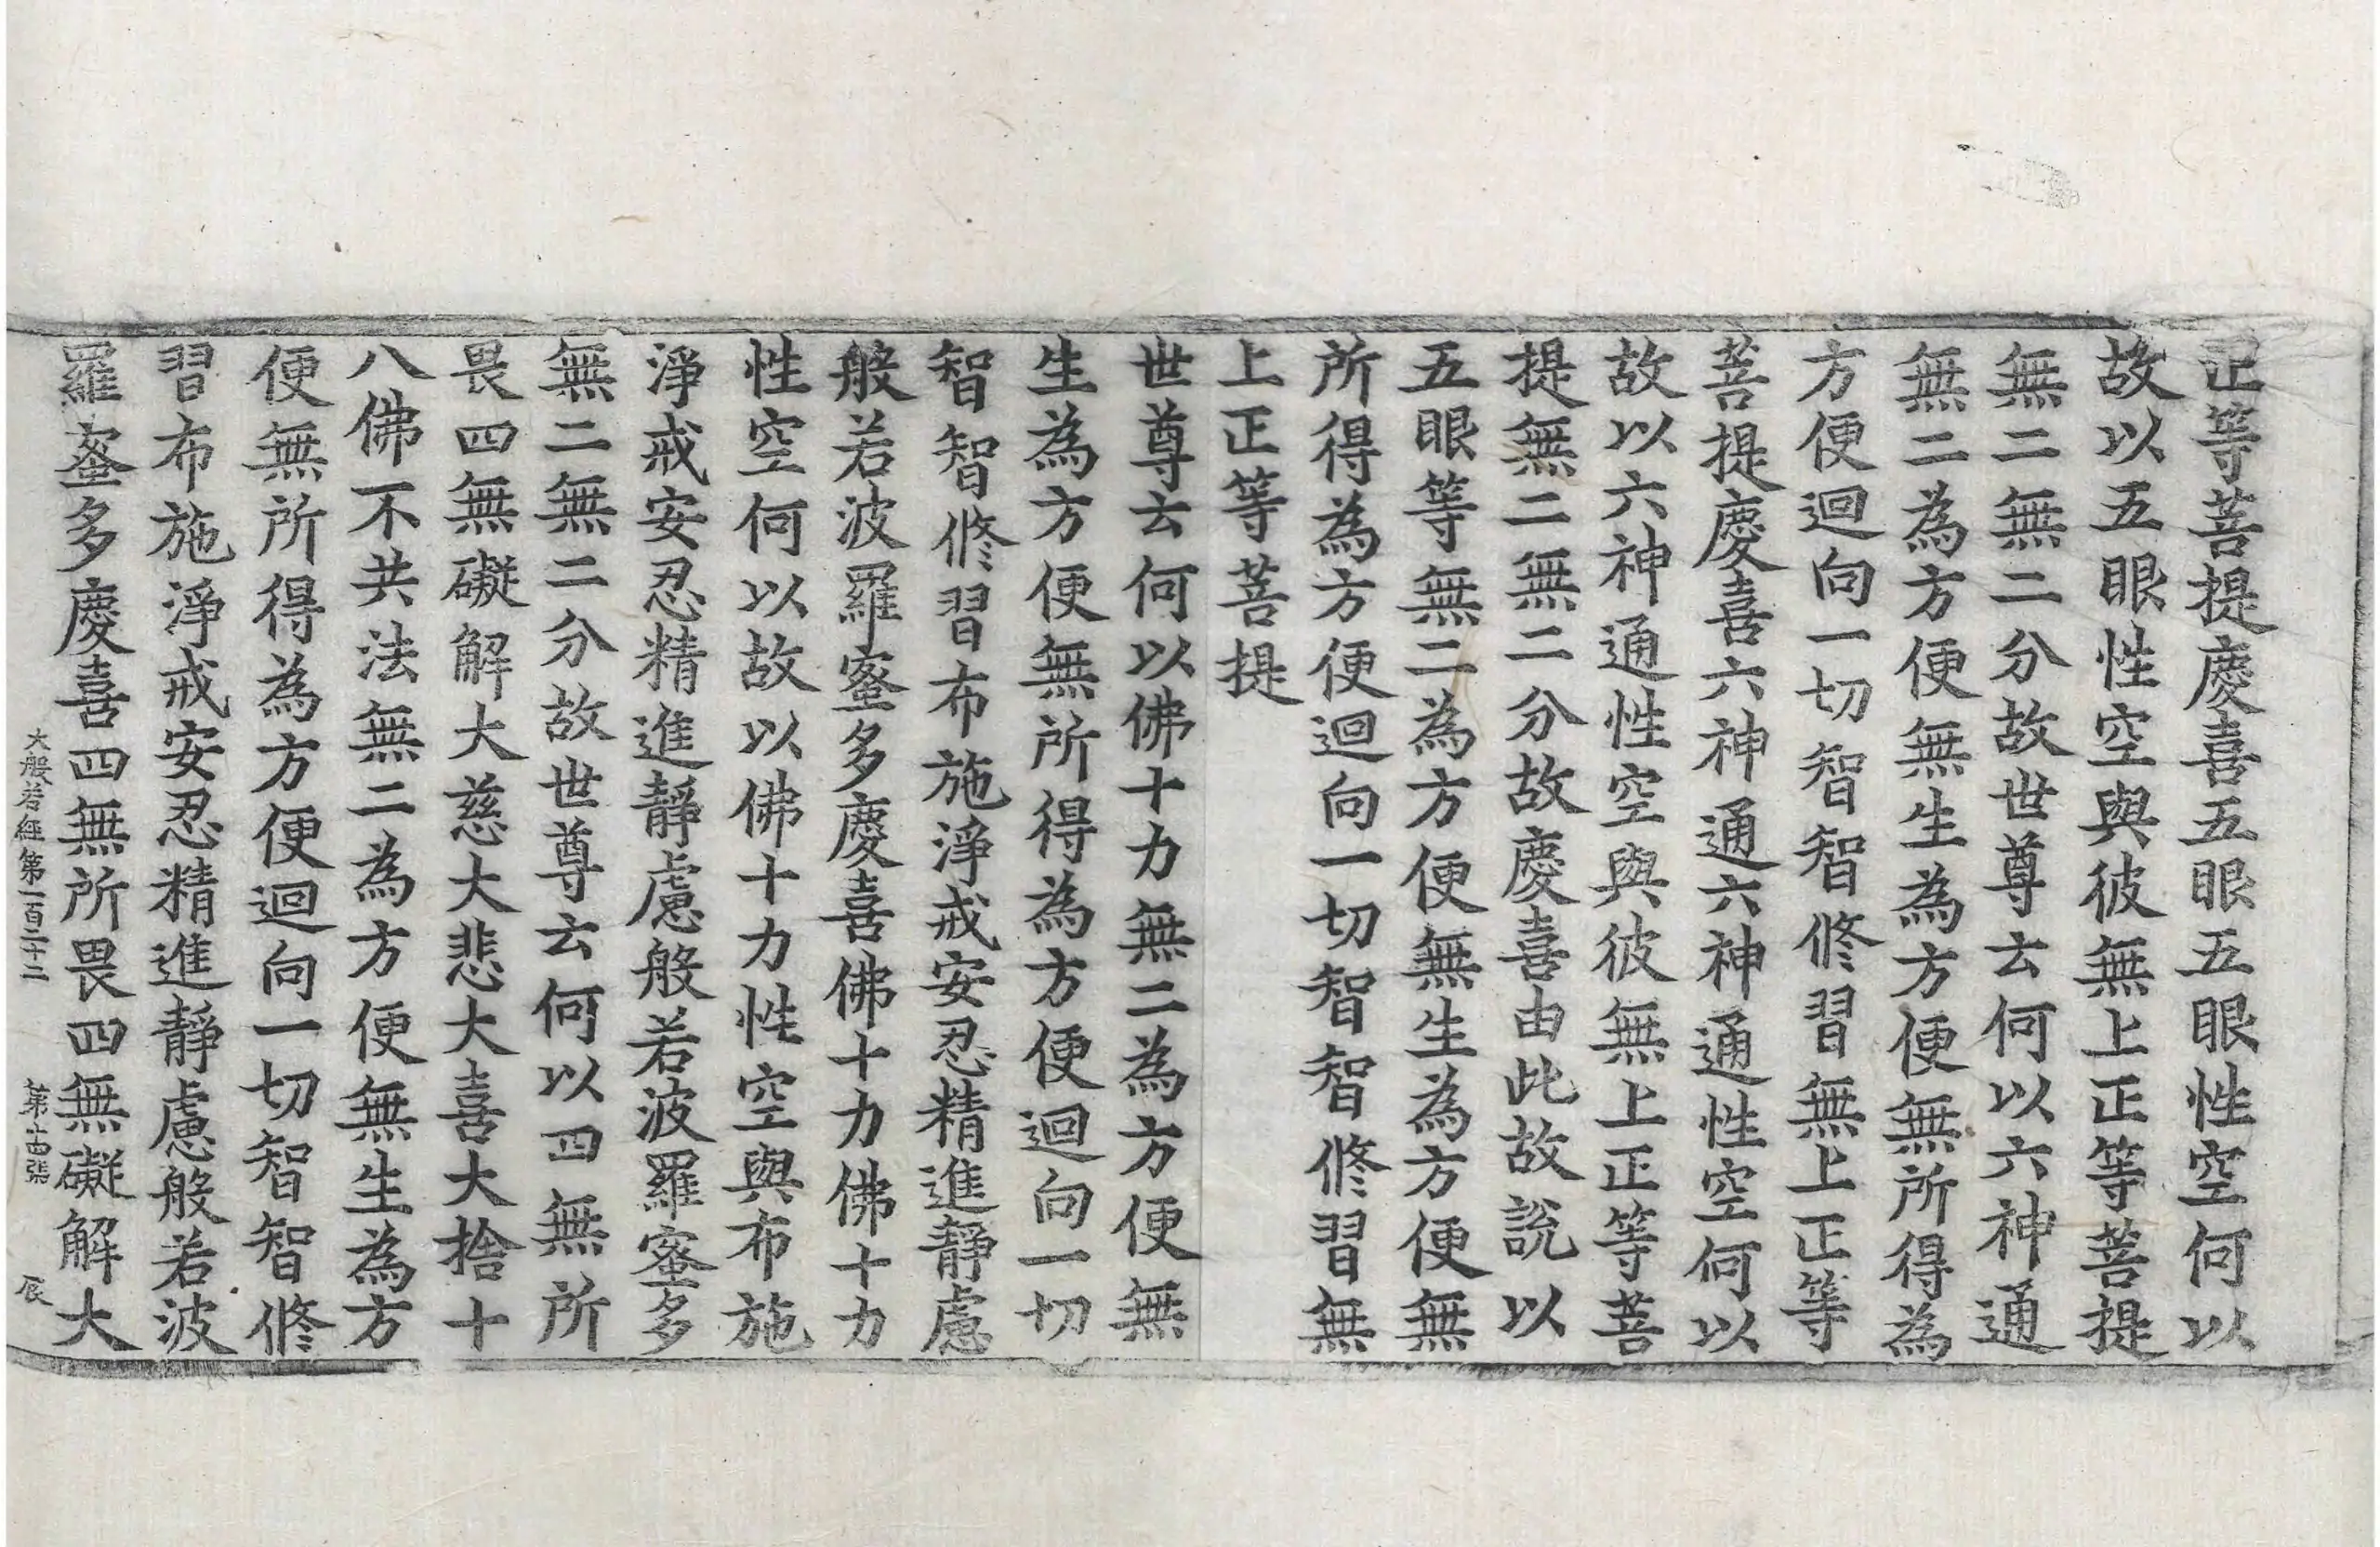 正等菩提慶喜五眼五眼性空何以
故以五眼性空與彼無上正等菩提
無二無二分故世尊云何以六神通
無二為方便無生為方便無所得為
方便迴向一切智智修習無上正等
菩提慶喜六神通六神通性空何以
故以六神通性空與彼無上正等菩
提無二無二分故慶喜由此故說以
五眼等無二為方便無生為方便無
所得為方便迴向一切智智修習無
上正等菩提
世尊云何以佛十力無二為方便無
生為方便無所得為方便迴向一切
智智修習布施淨戒安忍精進靜慮
般若波羅蜜多慶喜佛十力佛十力
性空何以故以佛十力性空與布施
淨戒安忍精進靜慮般若波羅蜜多
無二無二分故世尊云何以四無所
畏四無礙解大慈大悲大喜大捨十
八佛不共法無二為方便無生為方
便無所得為方便迴向一切智智修
習布施淨戒安忍精進靜慮般若波
羅蜜多慶喜四無所畏四無礙解大
大般若經第一百二十二 第十四張 辰